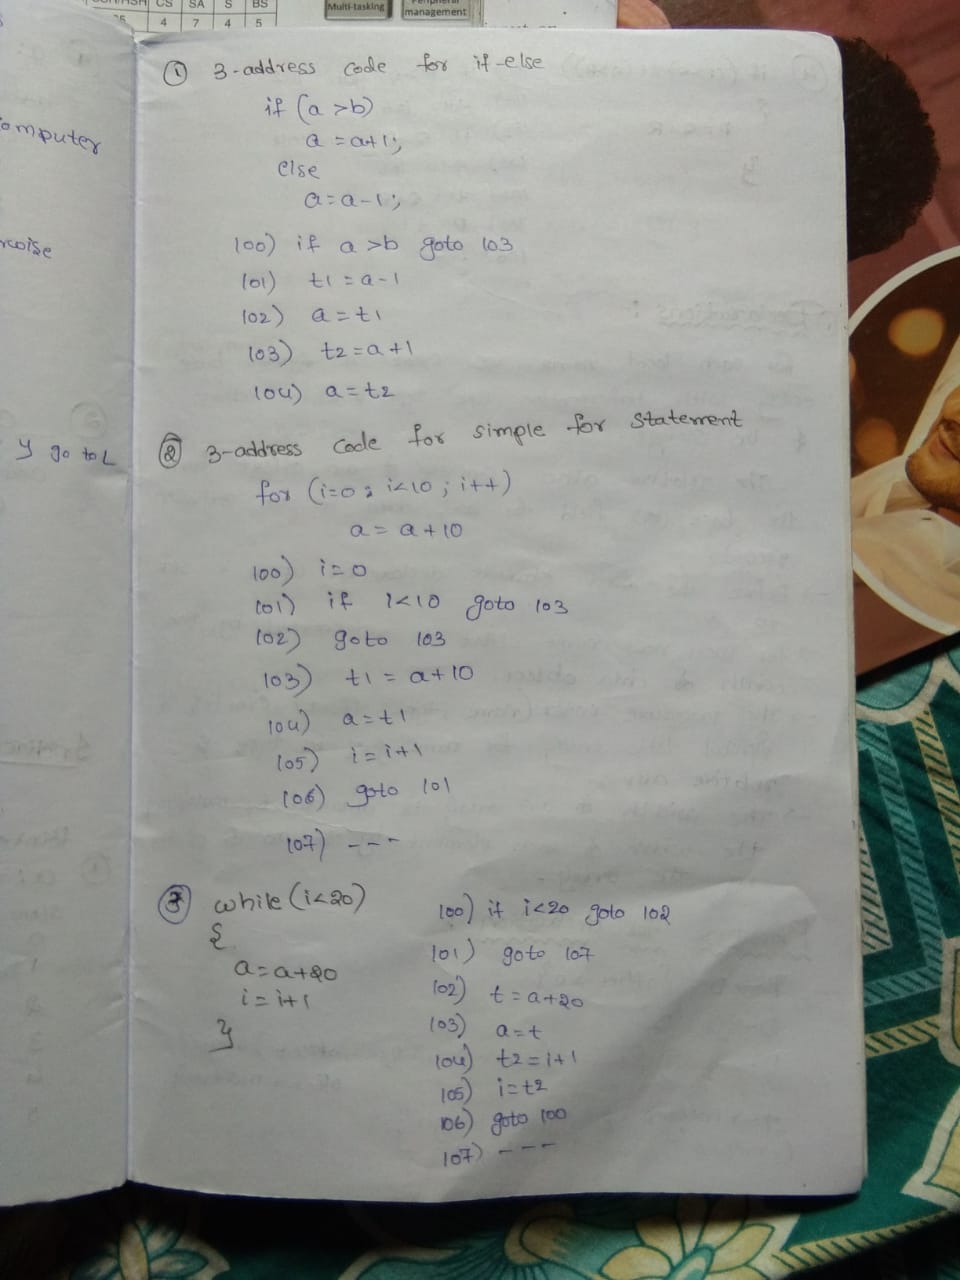 CS SA S BS
4 7 4 5
Multi-tasking
Peripheral management
omputer
y go to L
① 3-address code for if-else
if (a >b)
a = a+1;
else
a = a-1;
100) if a >b goto 103
101) t1 = a-1
102) a = t1
103) t2 = a +1
104) a = t2
② 3-address code for simple for statement
for (i=0; i<10; i++)
a = a+10
100) i = 0
101) if i<10 goto 103
102) goto 103
103) t1 = a+10
104) a = t1
105) i = i+1
106) goto 101
107) ---
③ while (i<20)
{
a = a+20
i = i+1
}
100) if i<20 goto 102
101) goto 107
102) t = a+20
103) a = t
104) t2 = i+1
105) i = t2
106) goto 100
107) ---